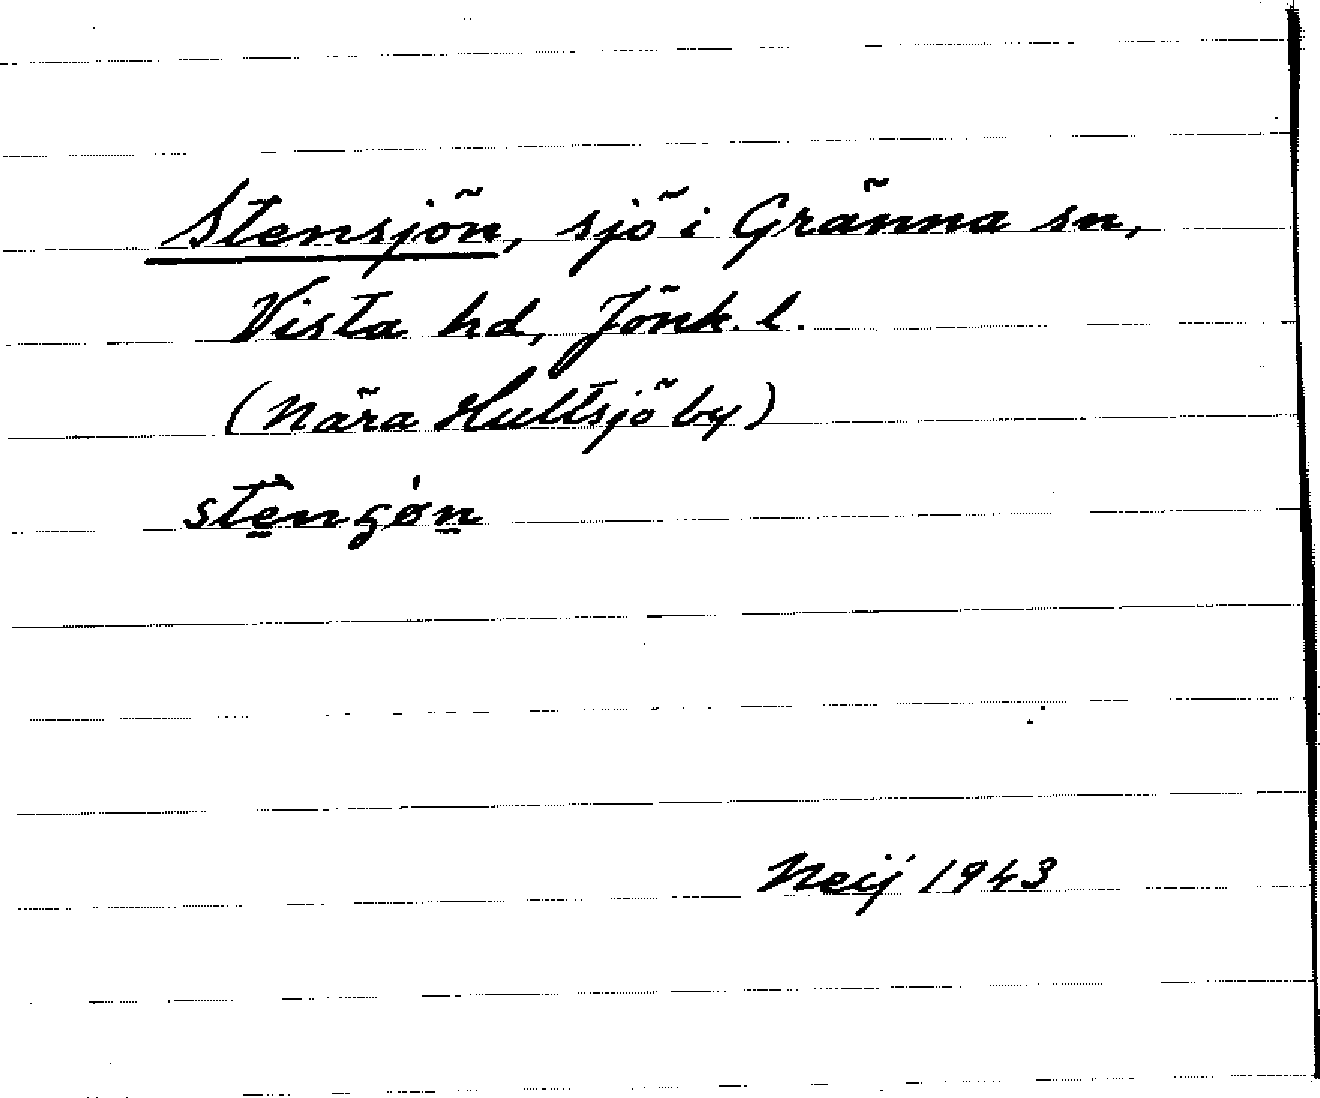 Stensjön, sjö i Gränna sn,
Vista hd, Jönk. l.
(Nära Hultsjö by)
Neij 1943